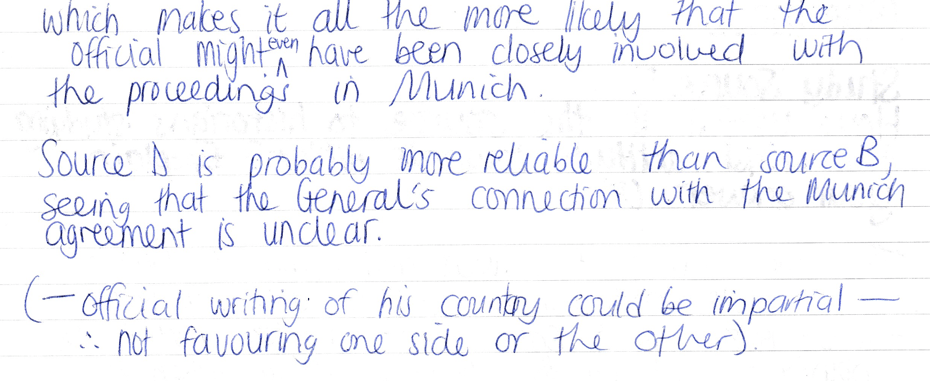 which makes it all the more likely that the
official might even have been closely involved with
the proceedings in Munich.
Source D is probably more reliable than source B,
seeing that the General's connection with the Munich
agreement is unclear.
(— official writing of his country could be impartial —
∴ not favouring one side or the other).